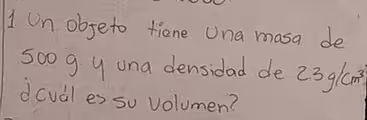 1 Un objeto tiene una masa de
500 g y una densidad de 2.3 g/cm³
¿Cuál es su volumen?